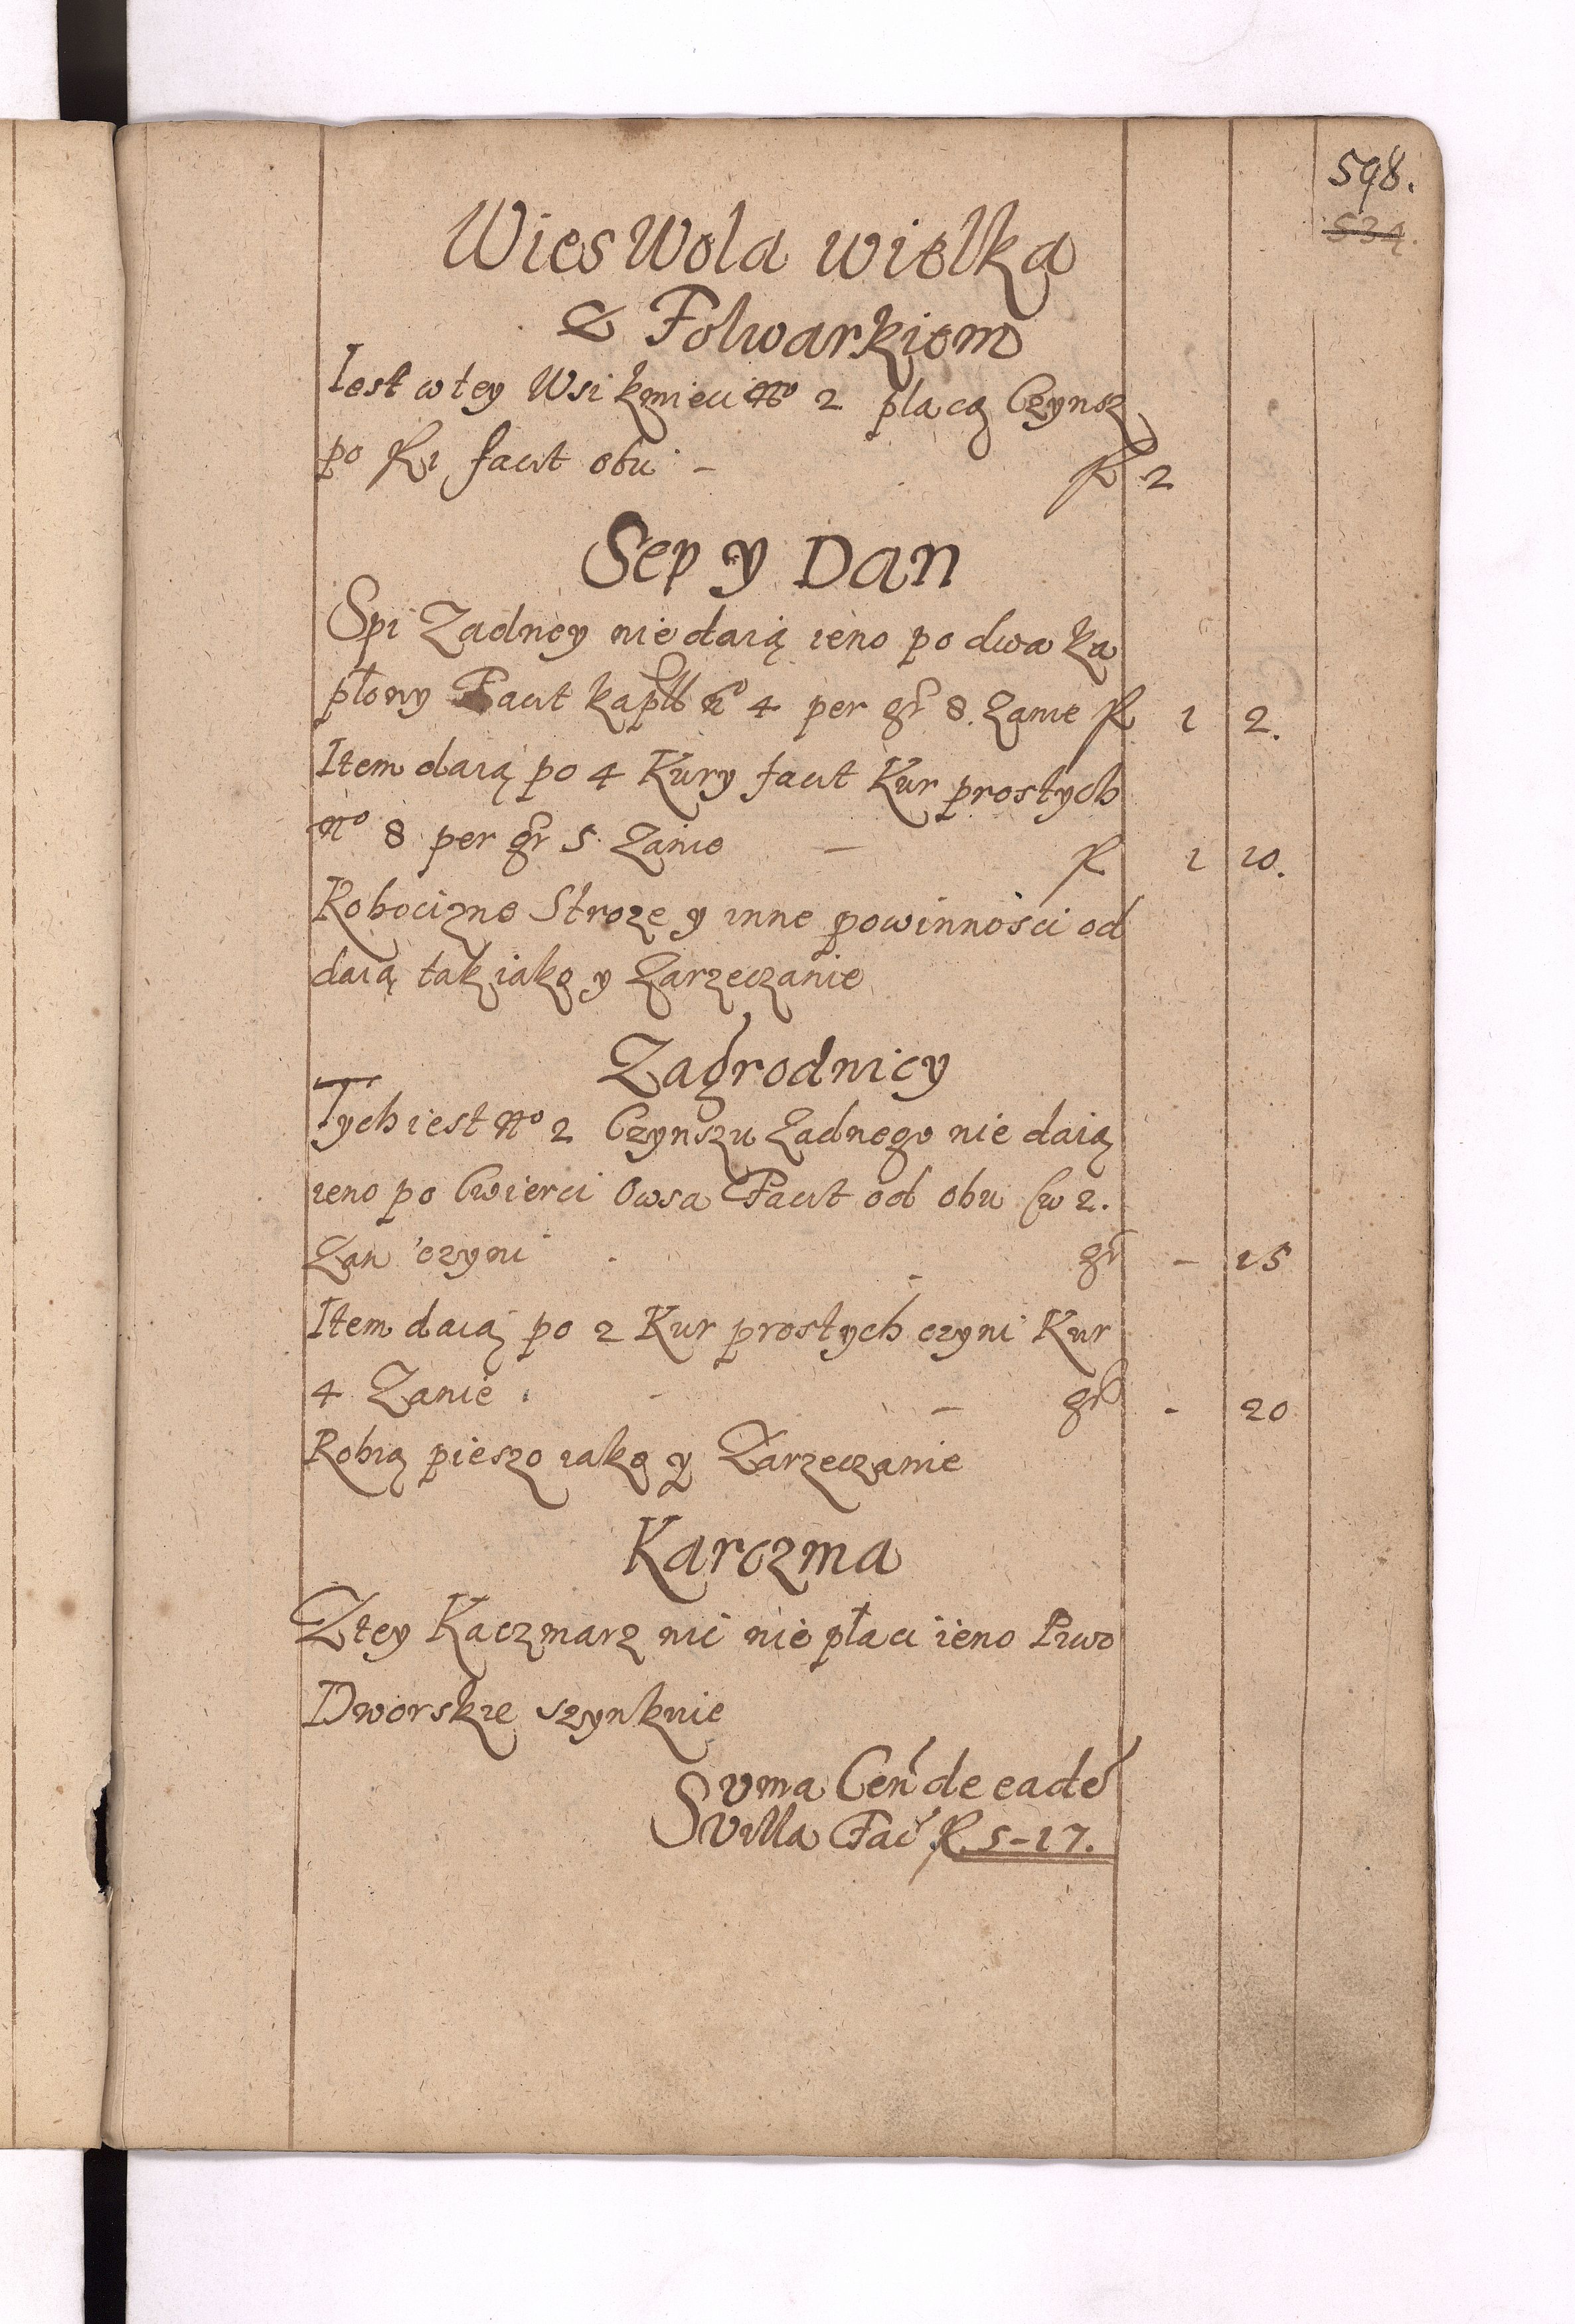 598.
534.
Wies Wola wielka
z Folwarkiem
Iest w tey Wsi kmieci nº 2 płacą Czynsz
po fl 1 facit obu - fl 2
Sep y Dan
Spi Zadney nie daią ieno po dwa ka
płony Facit kapłł nº 4 per gr 8. Zanie fl 1 2.
Item daią po 4 Kury facit Kur prostych
nº 8 per gr 5 Zanie - fl 1 10.
Robocizne Stroze y inne powinnosci od
daią tak iako y Zarzeczanie
Zagrodnicy
Tych iest nº 2 Czynszu Zadnego nie daią
ieno po Cwierci Owsa Facit od obu Cw 2.
Zan czyni gr - 15
Item daią po 2 Kur prostych czyni Kur
4 Zanie - gr - 20
Robią pieszo iako y Zarzeczanie
Karczma
Z tey Kaczmarz nic nie płaci ieno Piwo
Dworskie szynkuie
Suma Cen de eade
Villa Fac fl 5-17.